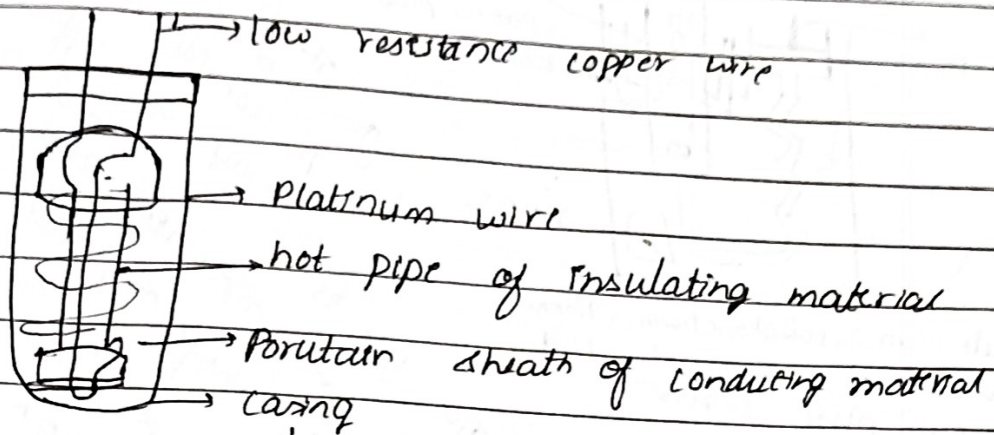 low resistance copper wire
Platinum wire
hot pipe of insulating material
Porutain sheath of conducting material
Casing